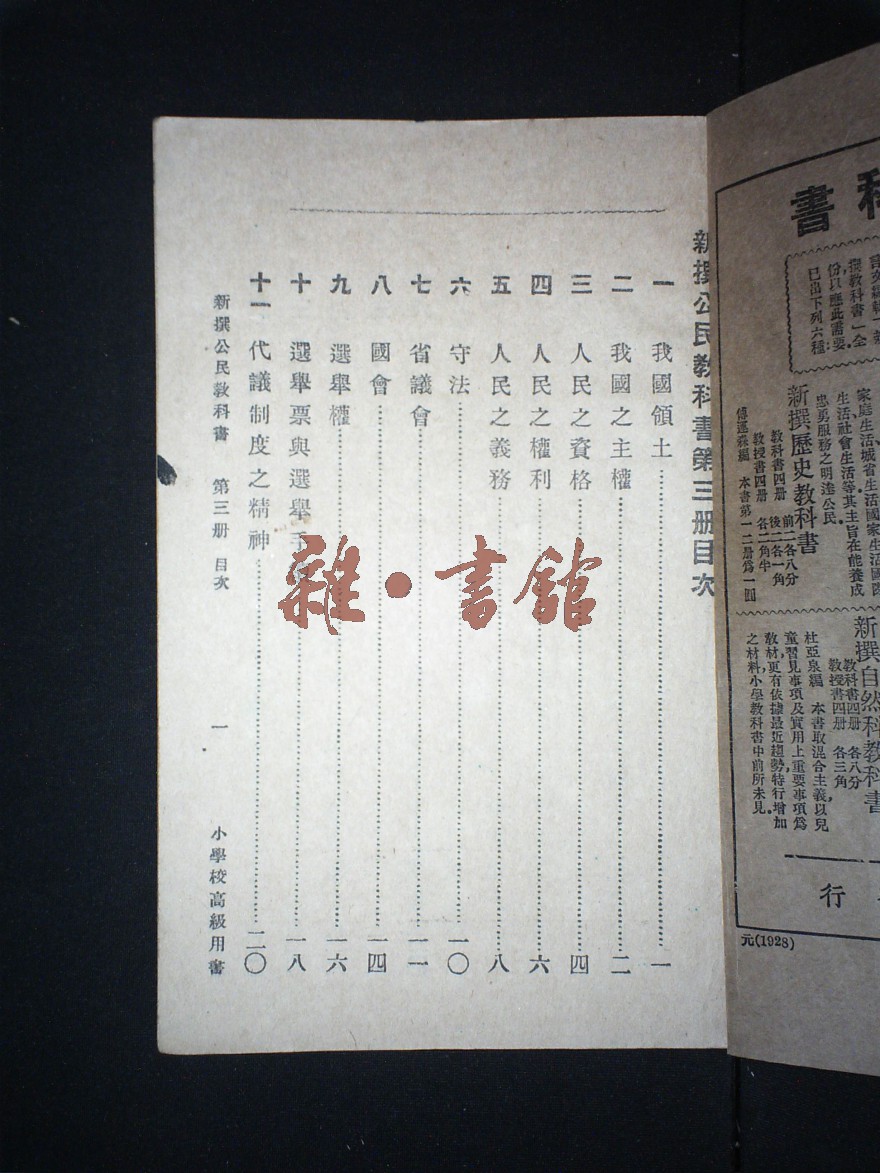 新撰公民教科書第三册目次
一 我國領土 一
二 我國之主權 二
三 人民之資格 四
四 人民之權利 六
五 人民之義務 八
六 守法 一〇
七 省議會 一一
八 國會 一四
九 選舉權 一六
十 選舉票與選舉 一八
十一 代議制度之精神 二〇
新撰公民教科書 第三册 目次 一 小學校高級用書
雜·書館
科書
撰教科書」全
份以應此需要
已出下列六種
家庭生活城省生活國家生活國
生活社會生活等其主旨在能養成
忠勇服務之明達公民
新撰歷史教科書
教科書四册 前二各八分 後二各一角
教授書四册 各二角半
傅運森編 本書第一二册爲一圓
新撰自然科教科書
教科書四册 各八分
教授書四册 各三角
杜亞泉編 本書取混合主義以兒
童習見事項及實用上重要事項爲
教材更有依據最近趨勢特行增加
之材料小學教科書中前所未見
行
元(1928)